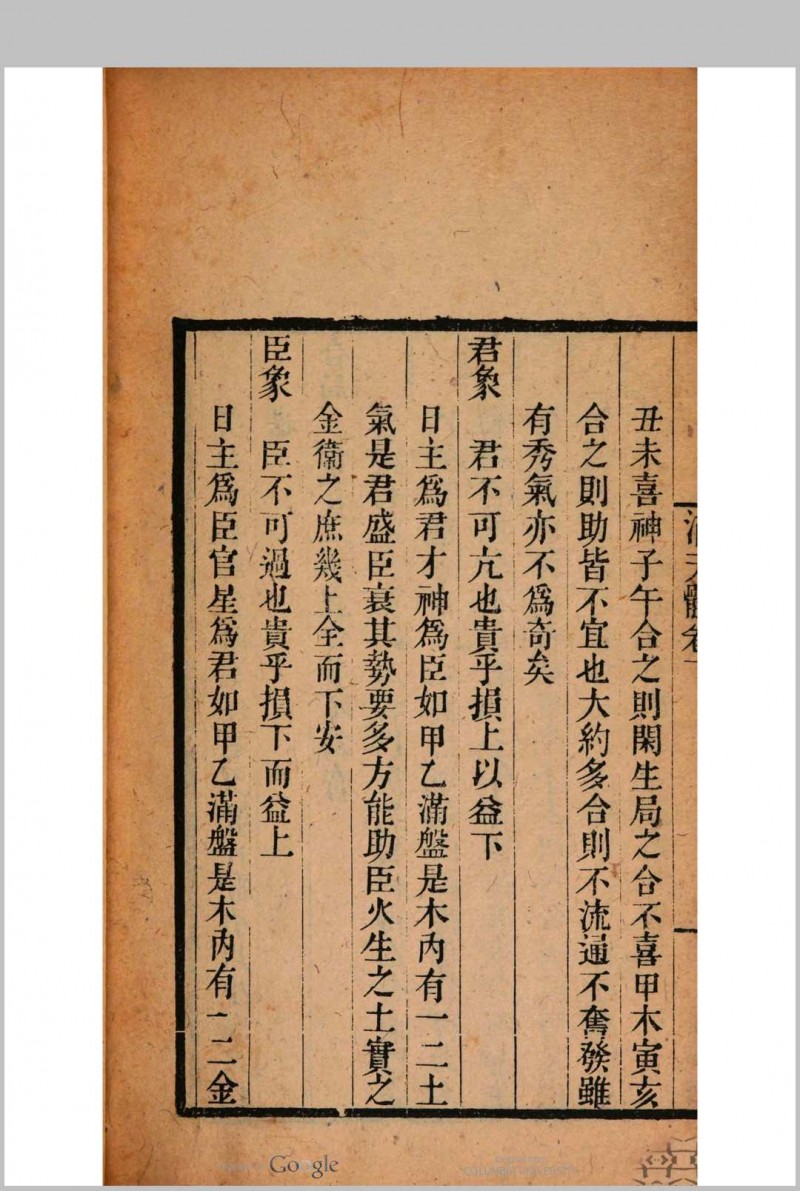 丑未喜神子午合之則閑生局之合不喜甲木寅亥
合之則助皆不宜也大約多合則不流通不奮發雖
有秀氣亦不爲奇矣
君象　君不可亢也貴乎損上以益下
日主爲君才神爲臣如甲乙滿盤是木內有一二土
氣是君盛臣衰其勢要多方能助臣火生之土實之
金衛之庶幾上全而下安
臣象　臣不可過也貴乎損下而益上
日主爲臣官星爲君如甲乙滿盤是木內有一二金
Google